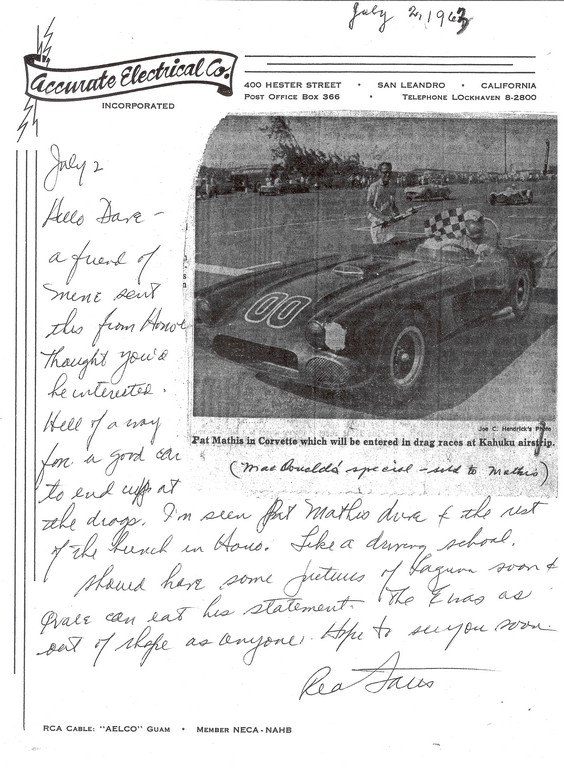 July 2, 1963
Accurate Electrical Co.
INCORPORATED
400 HESTER STREET • SAN LEANDRO • CALIFORNIA
POST OFFICE BOX 366 • TELEPHONE LOCKHAVEN 8-2800
July 2
Hello Dave –
a friend of
mine sent
this from Hono
thought you'd
be interested.
Hell of a way
for a good car
to end up at
the drags. I'm seen Pat Mathis drive & the rest
of the bunch in Hono. Like a driving school.
Should have some pictures of Laguna soon &
Qvale can eat his statement. The was as
out of shape as anyone. Hope to see you soon.
00
Joe C. Hendrick's Photo
Pat Mathis in Corvette which will be entered in drag races at Kahuku airstrip.
(MacDonalds' special – sold to Mathis)
RCA CABLE: "AELCO" GUAM • MEMBER NECA-NAHB